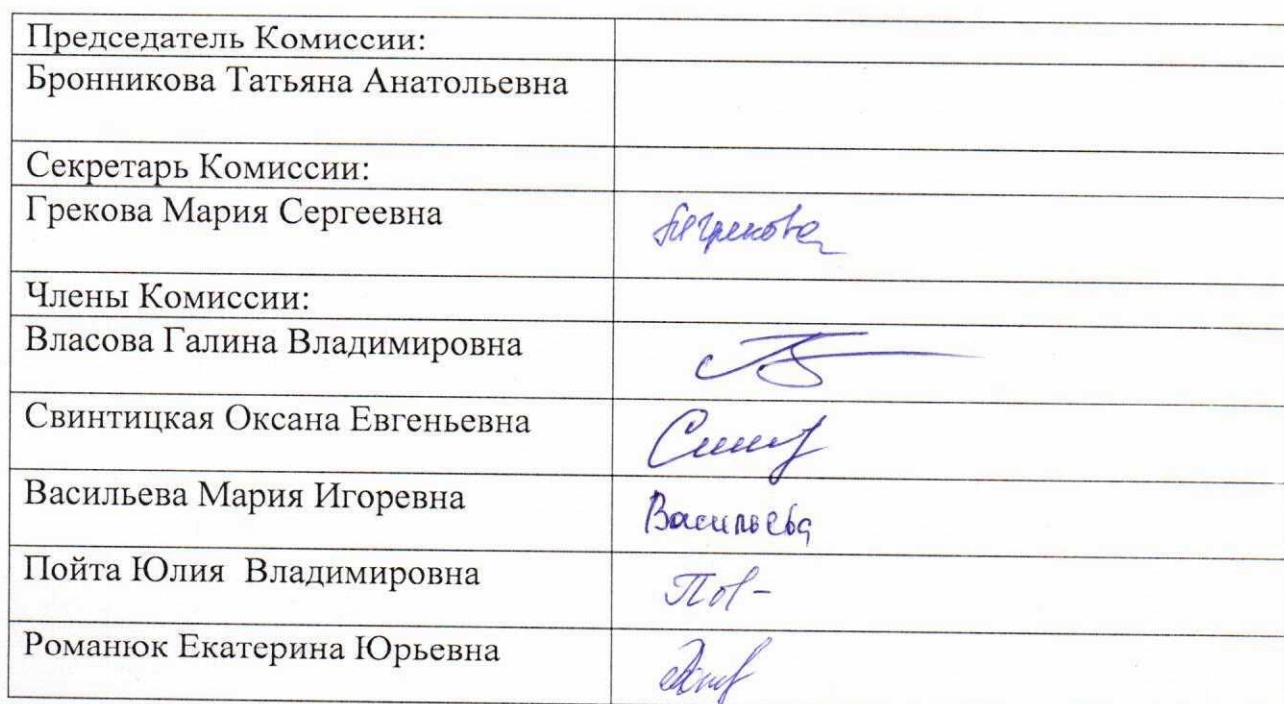 Председатель Комиссии:
Бронникова Татьяна Анатольевна
Секретарь Комиссии:
Грекова Мария Сергеевна
Члены Комиссии:
Власова Галина Владимировна
Свинтицкая Оксана Евгеньевна
Васильева Мария Игоревна Васильева
Пойта Юлия Владимировна
Романюк Екатерина Юрьевна